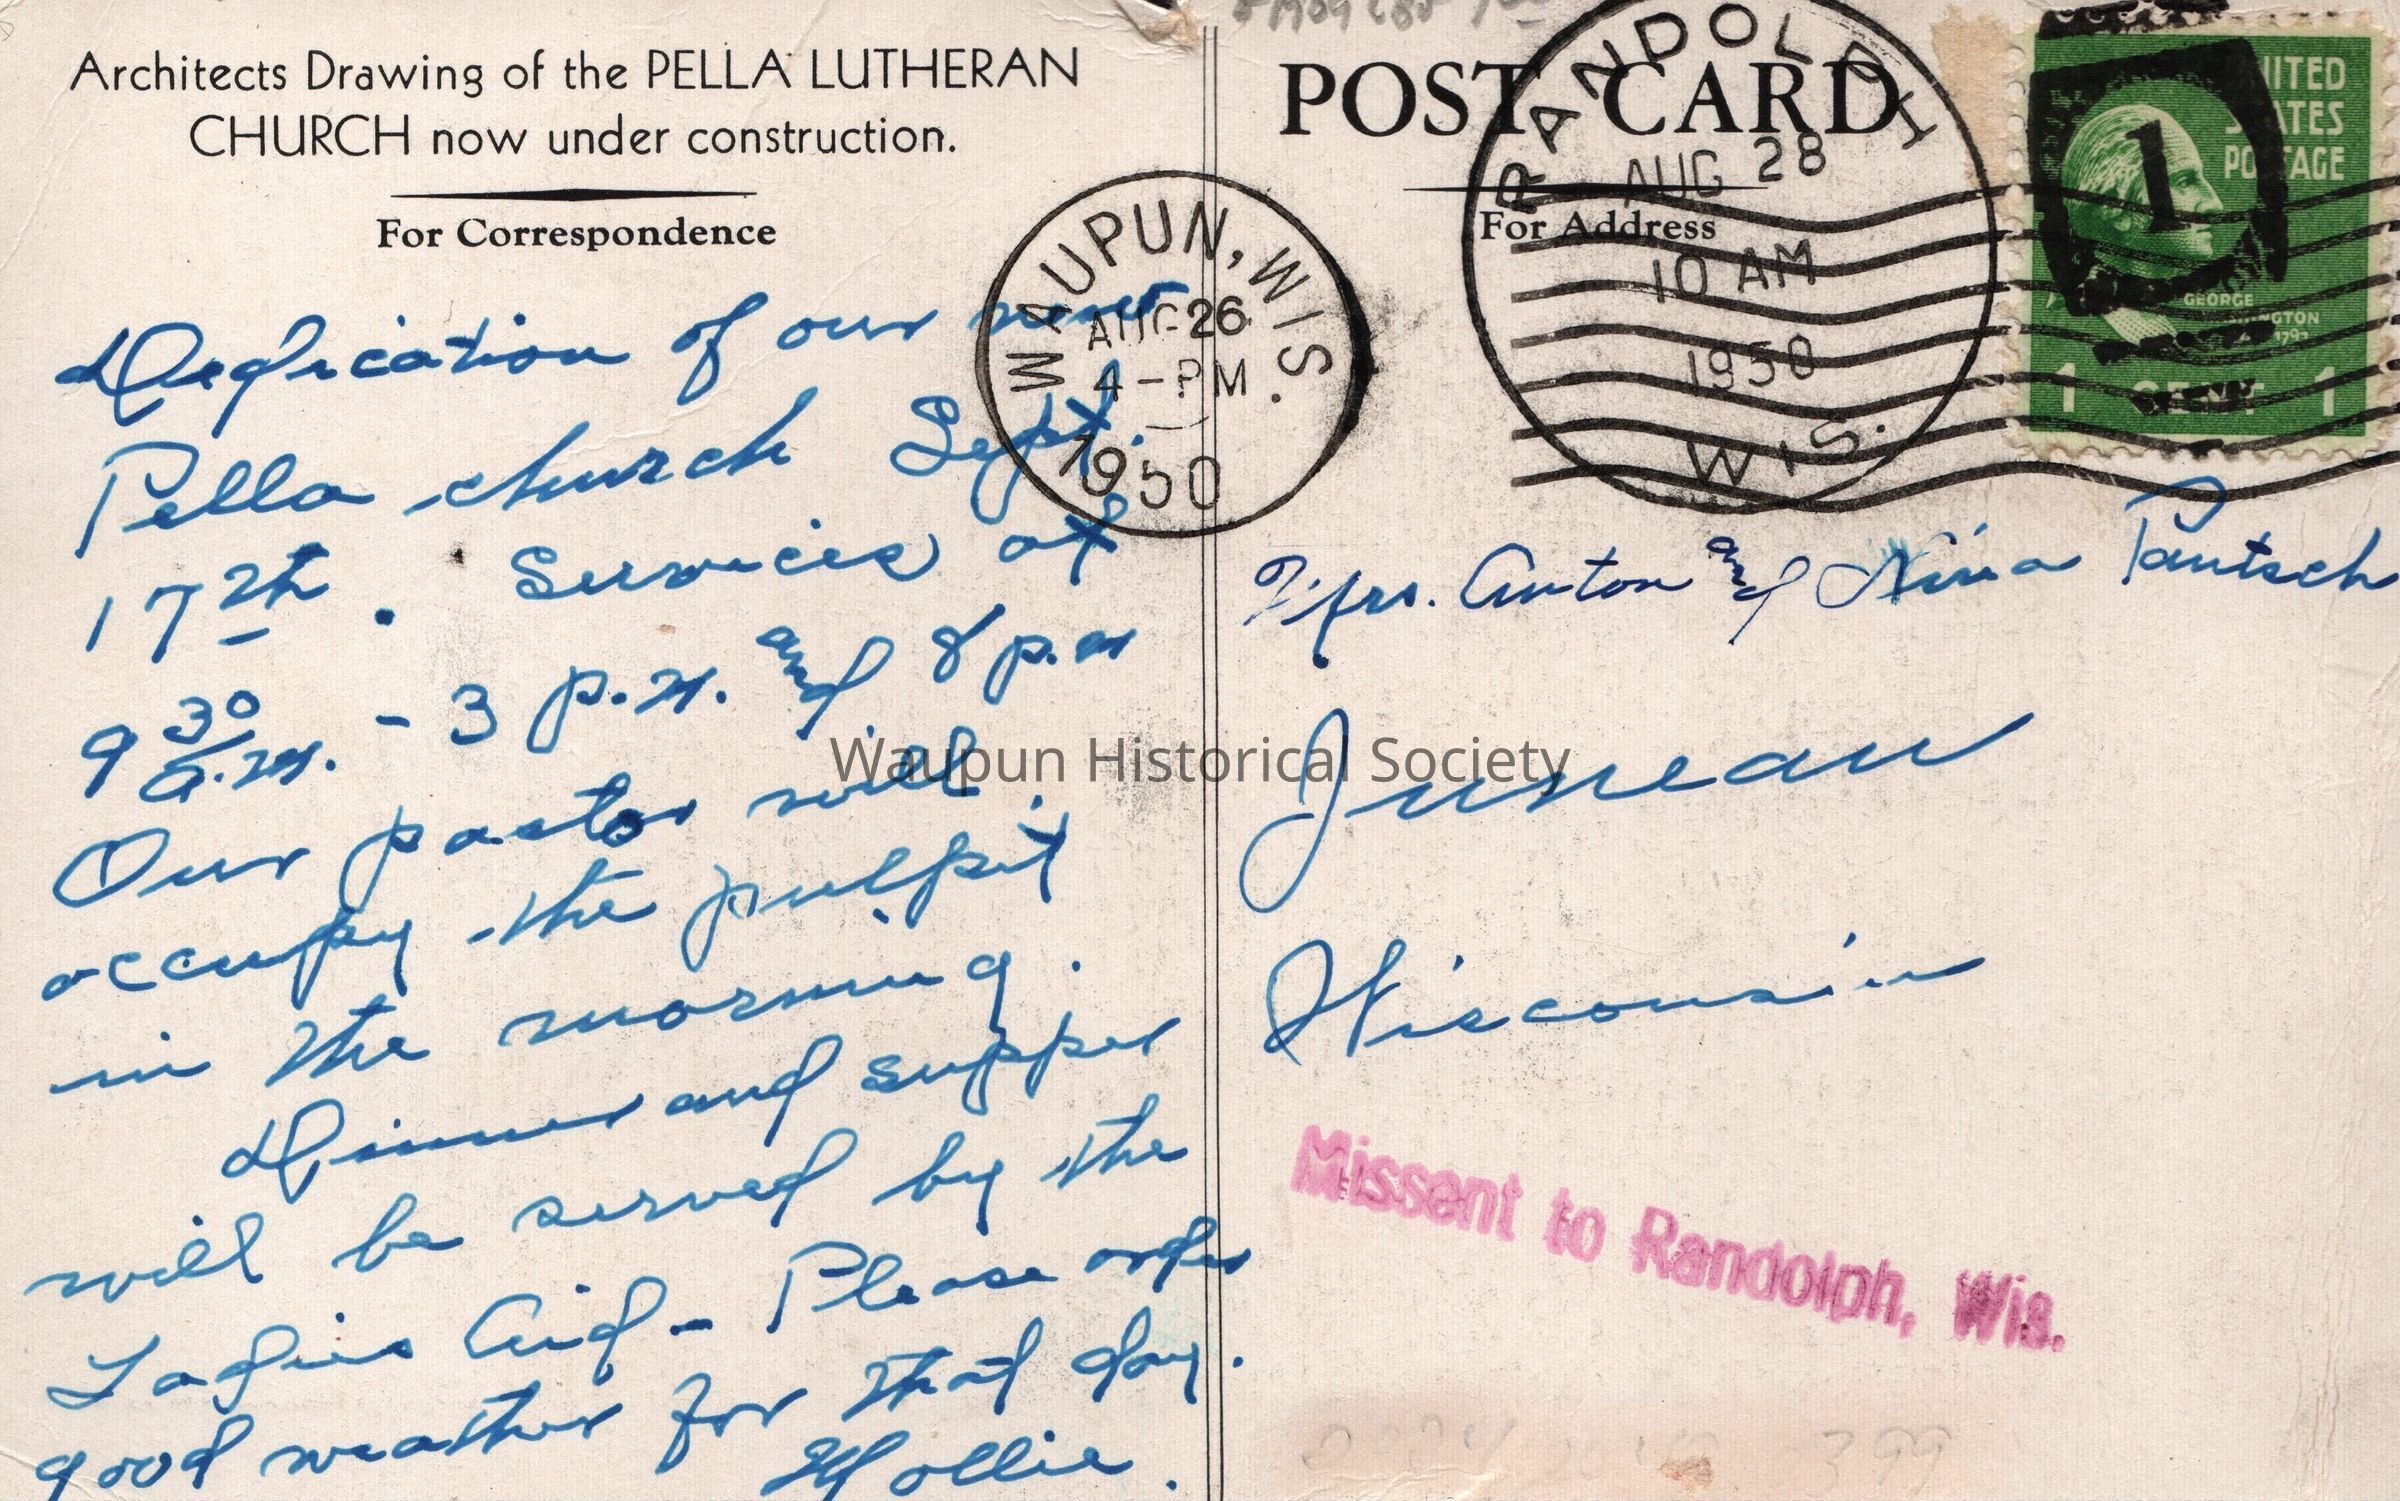 Architects Drawing of the PELLA LUTHERAN
CHURCH now under construction.
For Correspondence
Dedication of our new
Pella church Sept.
17th. Services at
9 30 a.m. - 3 p.m. and 8 p.m
Our pastor will
occupy the pulpit
in the morning.
Dinner and supper
will be served by the
Ladies Aid - Please order
good weather for that day.
Mollie.
WAUPUN, WIS.
AUG 26
4-PM
1950
POST CARD
For Address
RANDOLPH
AUG 28
10 AM
1950
WIS.
UNITED
STATES
POSTAGE
1
GEORGE
WASHINGTON
1 CENT 1
Mrs. Anton and Nina Pautsch
Juneau
Wisconsin
Missent to Randolph, Wis.
Waupun Historical Society